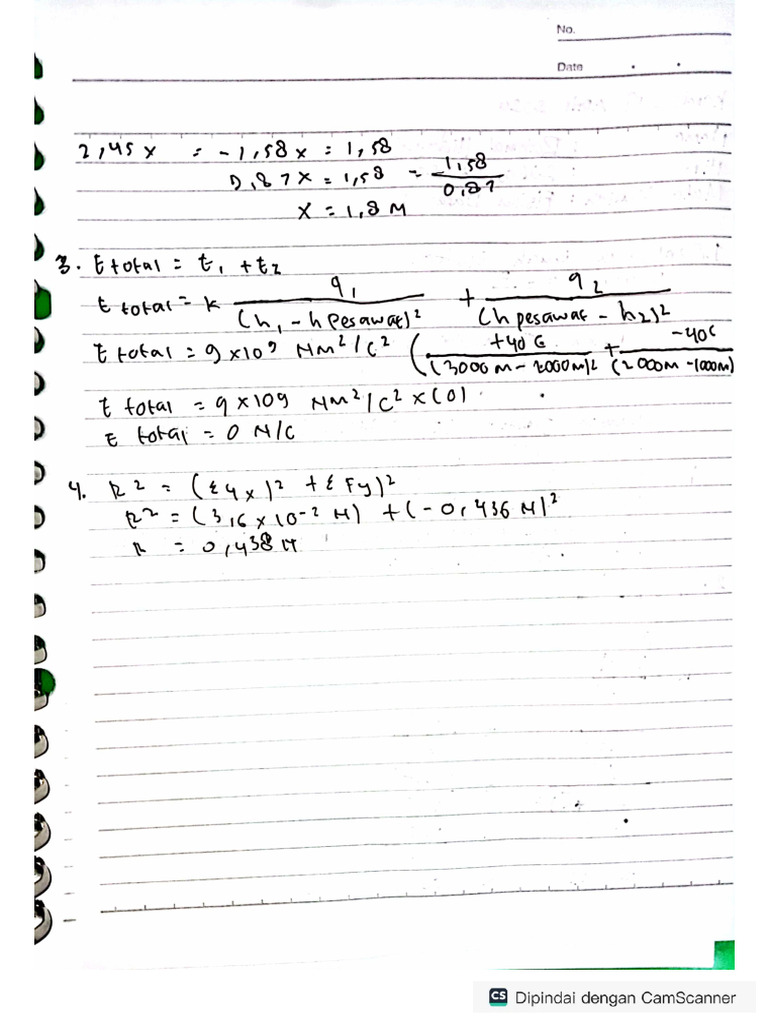 No.
Date
2,45 x = -1,58 x = 1,58
0,87 x = 1,58 = 1,58 / 0,87
x = 1,8 M
3. E total = E₁ + E₂
E total = k q₁ / (h₁ - h pesawat)² + q₂ / (h pesawat - h₂)²
E total = 9 x 10⁹ Nm²/C² ( +40 C / (3000 m - 2000 m)² + -40 C / (2000m - 1000m)
E total = 9 x 109 Nm²/C² x (0)
E total = 0 N/C
4. R² = (Σ4x)² + ΣFy)²
R² = (3,16 x 10⁻² N) + (-0,436 N)²
R = 0,438 N
CS Dipindai dengan CamScanner